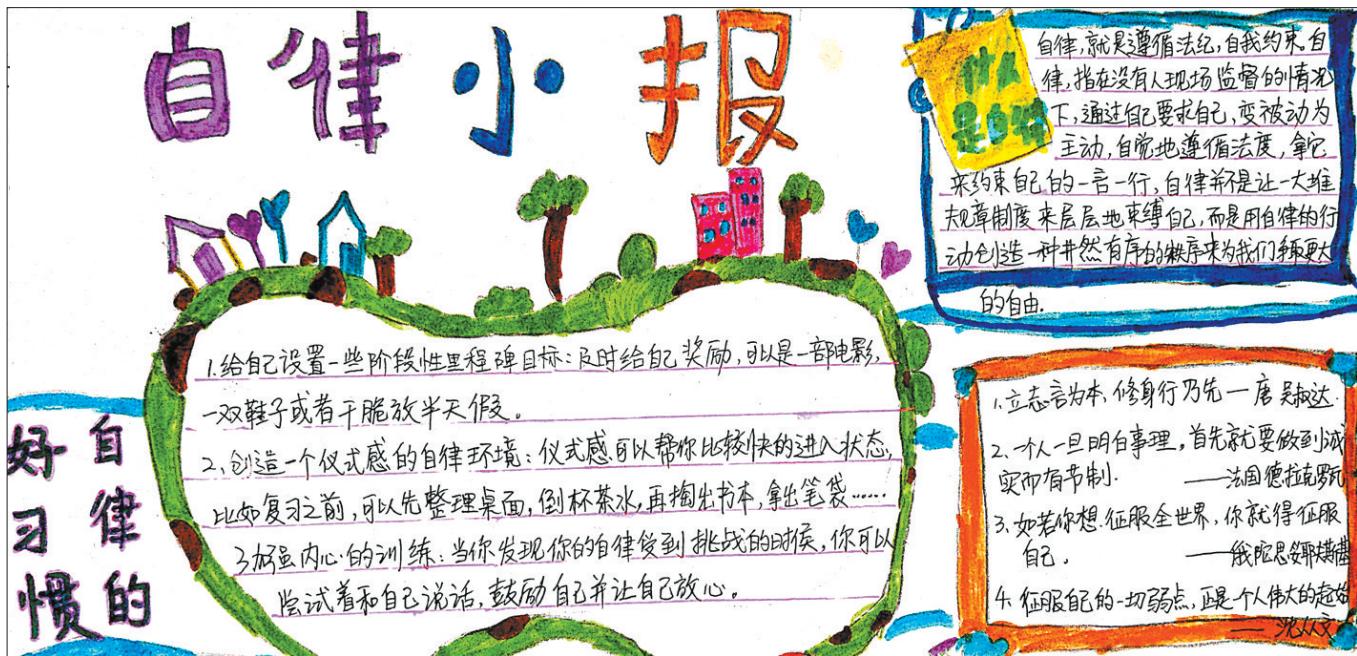 自律小报
什么
是自律
自律,就是遵循法纪,自我约束.自
律,指在没有人现场监督的情况
下,通过自己要求自己,变被动为
主动,自觉地遵循法度,拿它
来约束自己的一言一行,自律并不是让一大堆
规章制度来层层地束缚自己,而是用自律的行
动创造一种井然有序的秩序来为我们争取更大
的自由.
自律的
好习惯
1.给自己设置一些阶段性里程碑目标:及时给自己奖励,可以是一部电影,
一双鞋子或者干脆放半天假。
2、创造一个仪式感的自律环境:仪式感可以帮你比较快的进入状态,
比如复习之前,可以先整理桌面,倒杯茶水,再掏出书本,拿出笔袋……
3.加强内心的训练:当你发现你的自律受到挑战的时候,你可以
尝试着和自己说话,鼓励自己并让自己放心。
1.立志言为本,修身行乃先—唐 吴叔达.
2.一个人一旦明白事理,首先就要做到诚
实而有节制. ——法国德拉克罗瓦
3.如若你想征服全世界,你就得征服
自己。 ——俄陀思妥耶夫斯基
4.征服自己的一切弱点,正是个人伟大的起始
——沈从文